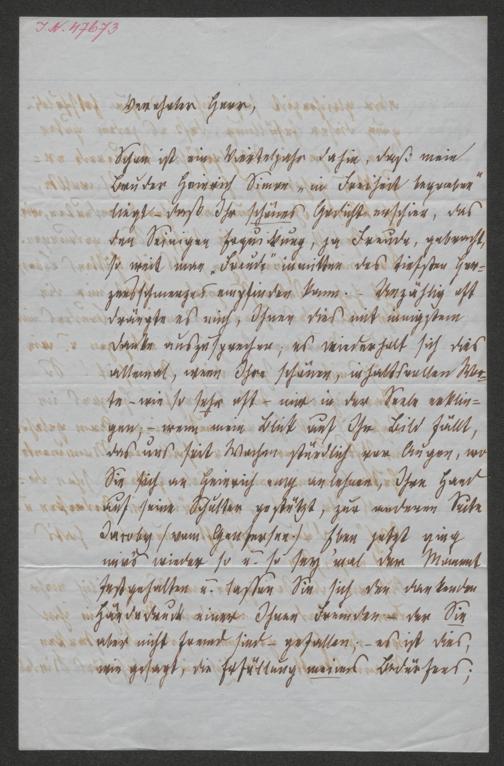 I.N. 47673
Verehrter Herr,
Schon ist ein Vierteljahr dahin, daß mein
Bruder Heinrich Simon „in Freiheit begraben“
liegt – daß Ihr schönes Gedicht erschien, das
den Seinigen Erquickung, ja Freude, gebracht,
so weit man „Freude“ inmitten des tiefsten Her-
zensschmerzes empfinden kann. Unzählig oft
drängte es mich, Ihnen dies mit innigstem
Danke auszusprechen, es wiederholt sich dies
allemal, wenn Ihre schönen, inhaltsvollen Wor-
te – wie so sehr oft – mir in der Seele erklin-
gen, – wenn mein Blick auf Ihr Bild fällt,
das uns seit Wochen stündlich vor Augen, wo
Sie sich an Heinrich eng anlehnen, Ihre Hand
auf seine Schulter gestützt, zur anderen Seite
Jacoby (vom Genfersee). Eben jetzt ging
mir's wieder so u. so sey 'mal der Moment
festgehalten u. lassen Sie sich den dankenden
Händedruck einer Ihnen Fremden – der Sie
aber nicht fremd sind – gefallen, – es ist dies,
wie gesagt, die Erfüllung meines Bedürfens;